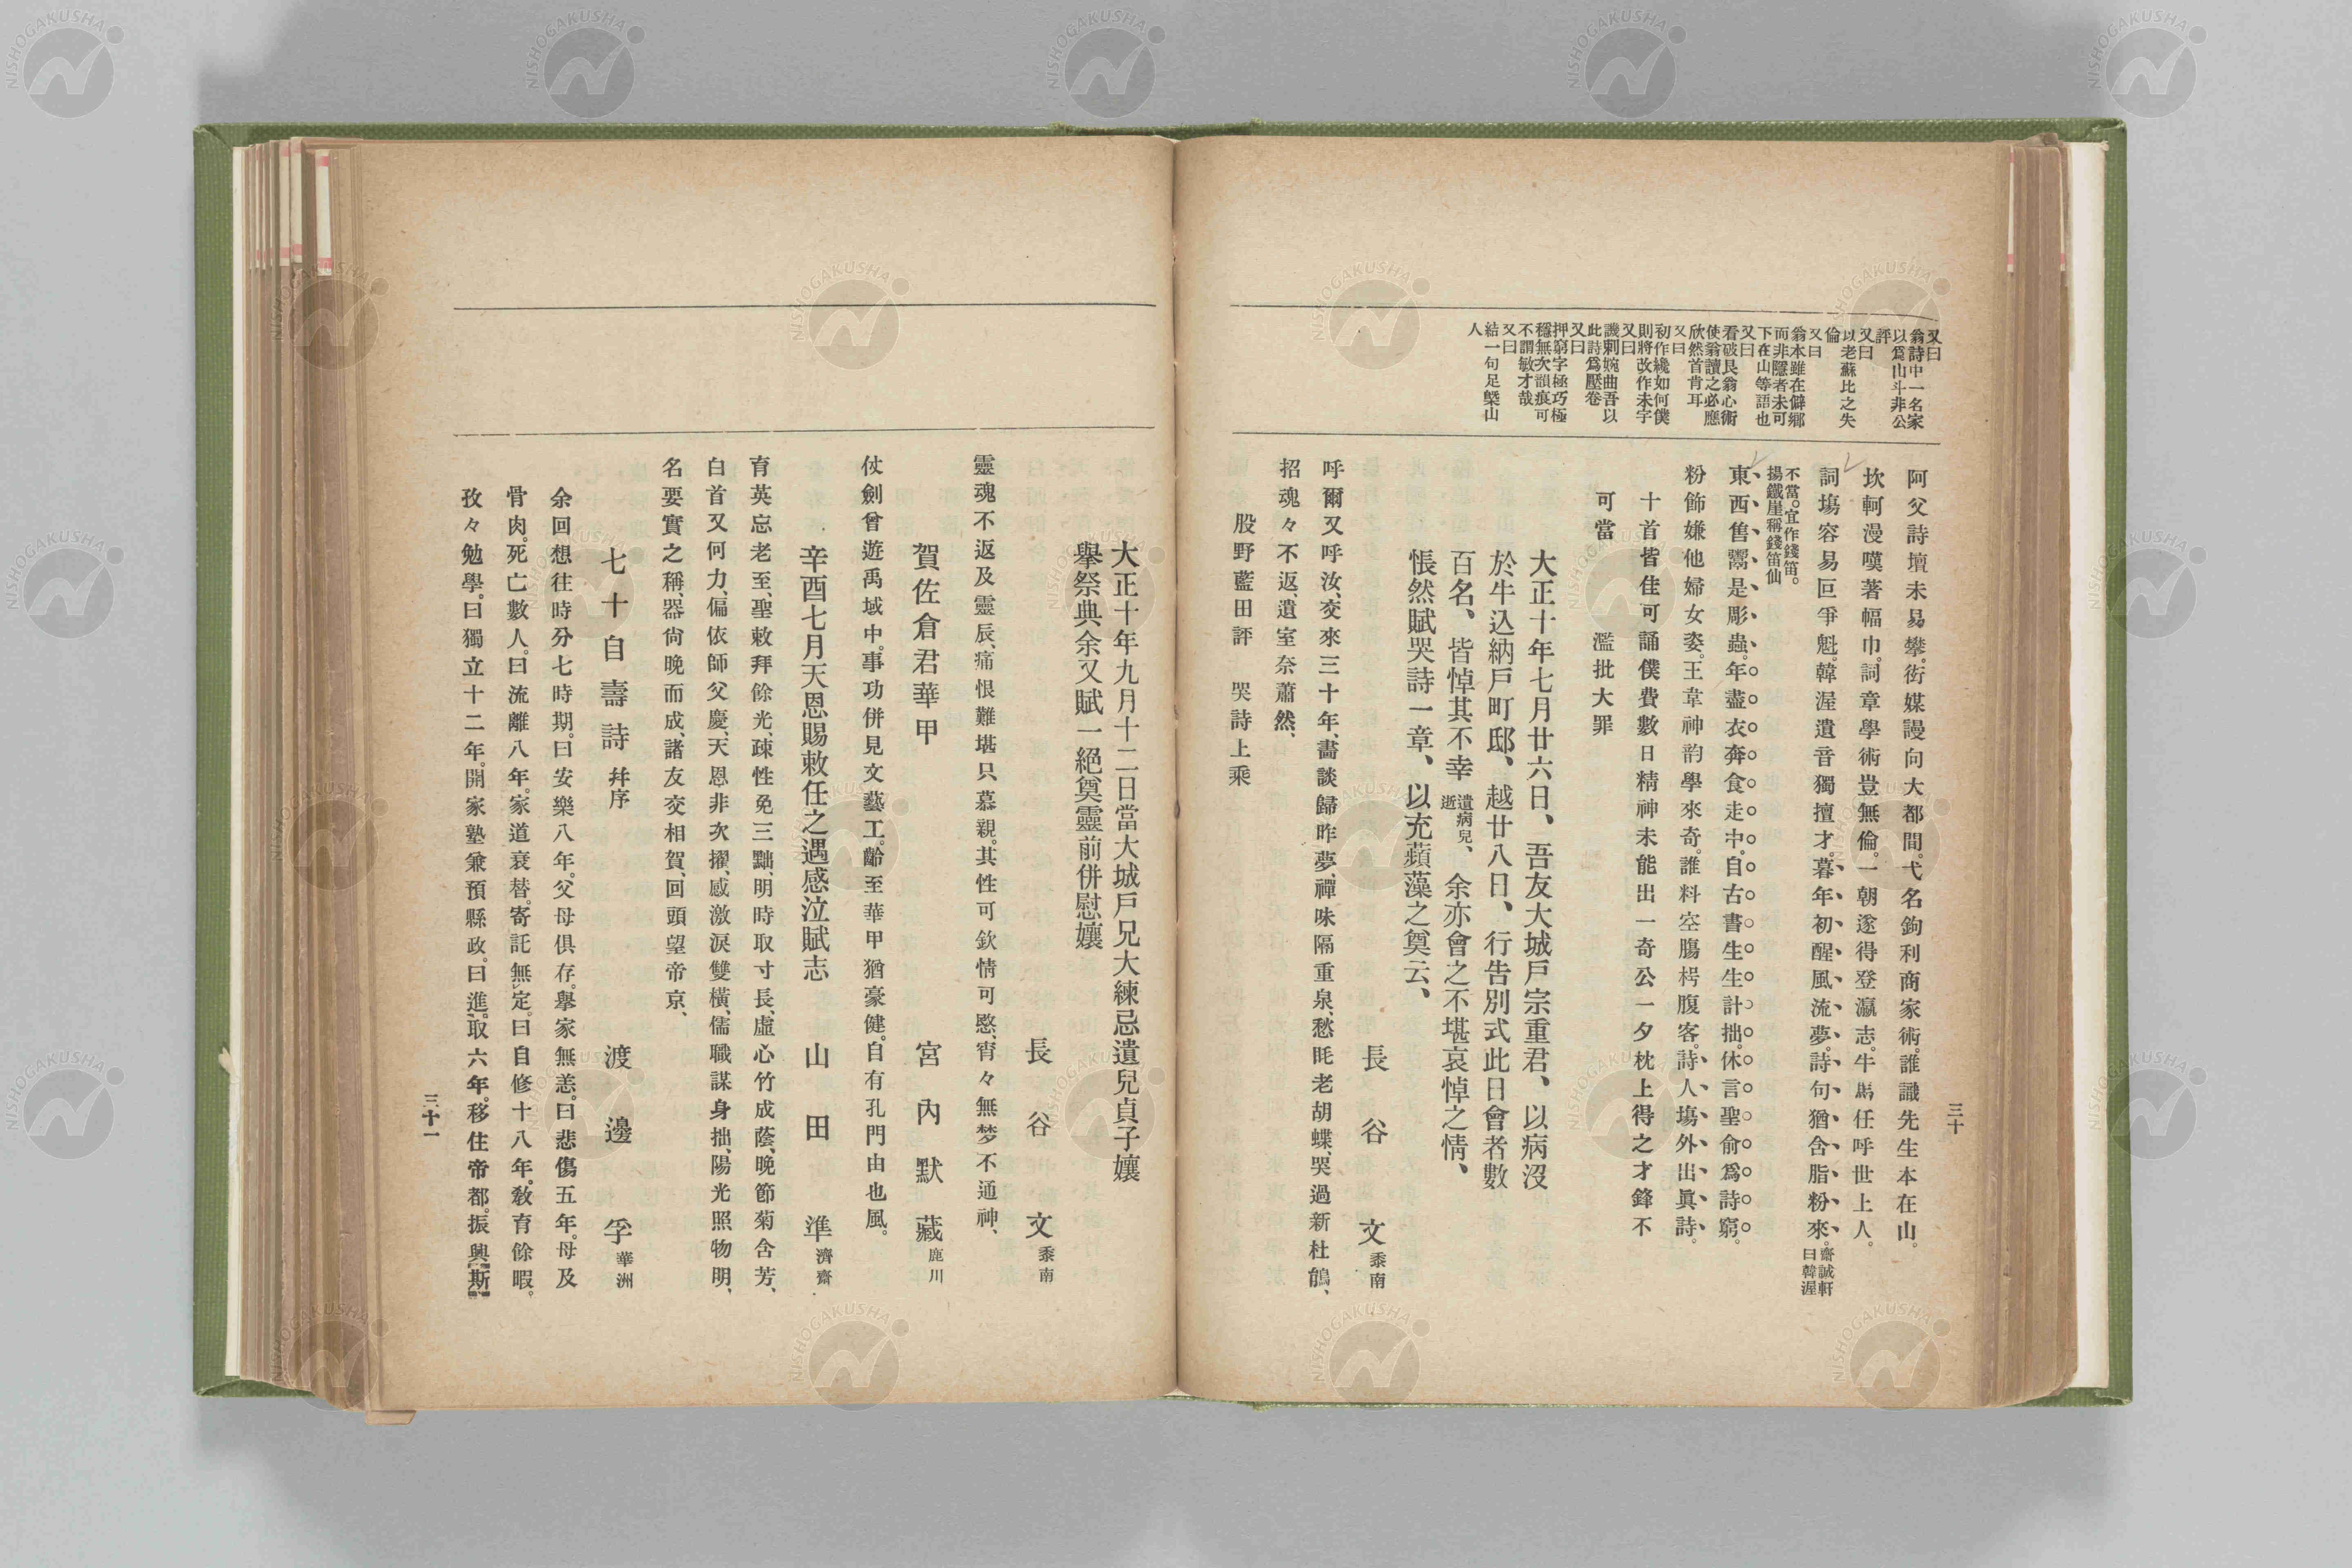 又曰
翁詩中一名家
以爲山斗非公
評
又曰
以老蘇比之失
倫
又曰
翁本雖在僻鄉
而非隱者未可
下在山等語也
又曰
看破艮翁心術
使翁讀之必應
欣然首肯耳
又曰
初作纔如何僕
則將改作未字
又曰
譏刺婉曲吾以
此詩爲壓卷
又曰
押窮字極巧極
穩無次韻痕可
不謂敏才哉
又曰
結一句足槩山
人
阿父詩壇未易攀。衒媒謾向大都間。弋名鉤利商家術。誰識先生本在山。
坎軻漫嘆著幅巾。詞章學術豈無倫。一朝遂得登瀛志。牛馬任呼世上人。
詞塲容易叵爭魁。韓渥遺音獨擅才。暮年初醒風流夢。詩句猶含脂粉來。齋誠軒曰韓渥
不當。宜作錢笛。
揚鐵崖稱錢笛仙
東西售鬻是彫蟲。年盡衣奔食走中。自古書生生計拙。休言聖俞爲詩窮。
粉飾嫌他婦女姿。王韋神韵學來奇。誰料空膓枵腹客。詩人塲外出眞詩。
十首皆佳可誦僕費數日精神未能出一奇公一夕枕上得之才鋒不
可當 濫批大罪
大正十年七月廿六日、吾友大城戶宗重君、以病沒
於牛込納戶町邸、越廿八日、行告別式此日會者數
百名、皆悼其不幸遺病兒、逝余亦會之不堪哀悼之情、
悵然賦哭詩一章、以充蘋藻之奠云、
長谷 文黍南
呼爾又呼汝、交來三十年、書談歸昨夢、禪味隔重泉、愁眊老胡蝶、哭過新杜鵑、
招魂々不返、遺室奈蕭然、
股野藍田評 哭詩上乘
三十
大正十年九月十二日當大城戶兄大練忌遺兒貞子孃
擧祭典余又賦一絕奠靈前併慰孃
長谷 文黍南
靈魂不返及靈辰、痛恨難堪只慕親。其性可欽情可愍、宵々無梦不通神、
賀佐倉君華甲
宮內默藏鹿川
仗劍曾遊禹域中。事功併見文藝工。齡至華甲猶豪健。自有孔門由也風。
辛酉七月天恩賜敕任之遇感泣賦志
山田 準濟齋
育英忘老至、聖敕拜餘光、疎性免三黜、明時取寸長、虛心竹成蔭、晚節菊含芳、
白首又何力、偏依師父慶、天恩非次擢、感激淚雙橫、儒職謀身拙、陽光照物明、
名要實之稱、器尙晚而成、諸友交相賀、回頭望帝京、
七十自壽詩 幷序
渡邊 孚華洲
余回想往時分七時期。曰安樂八年。父母俱存。擧家無恙。曰悲傷五年。母及
骨肉。死亡數人。曰流離八年。家道衰替。寄託無定。曰自修十八年。敎育餘暇。
孜々勉學。曰獨立十二年。開家塾兼預縣政。曰進取六年。移住帝都。振興斯
三十一
NISHOGAKUSHA